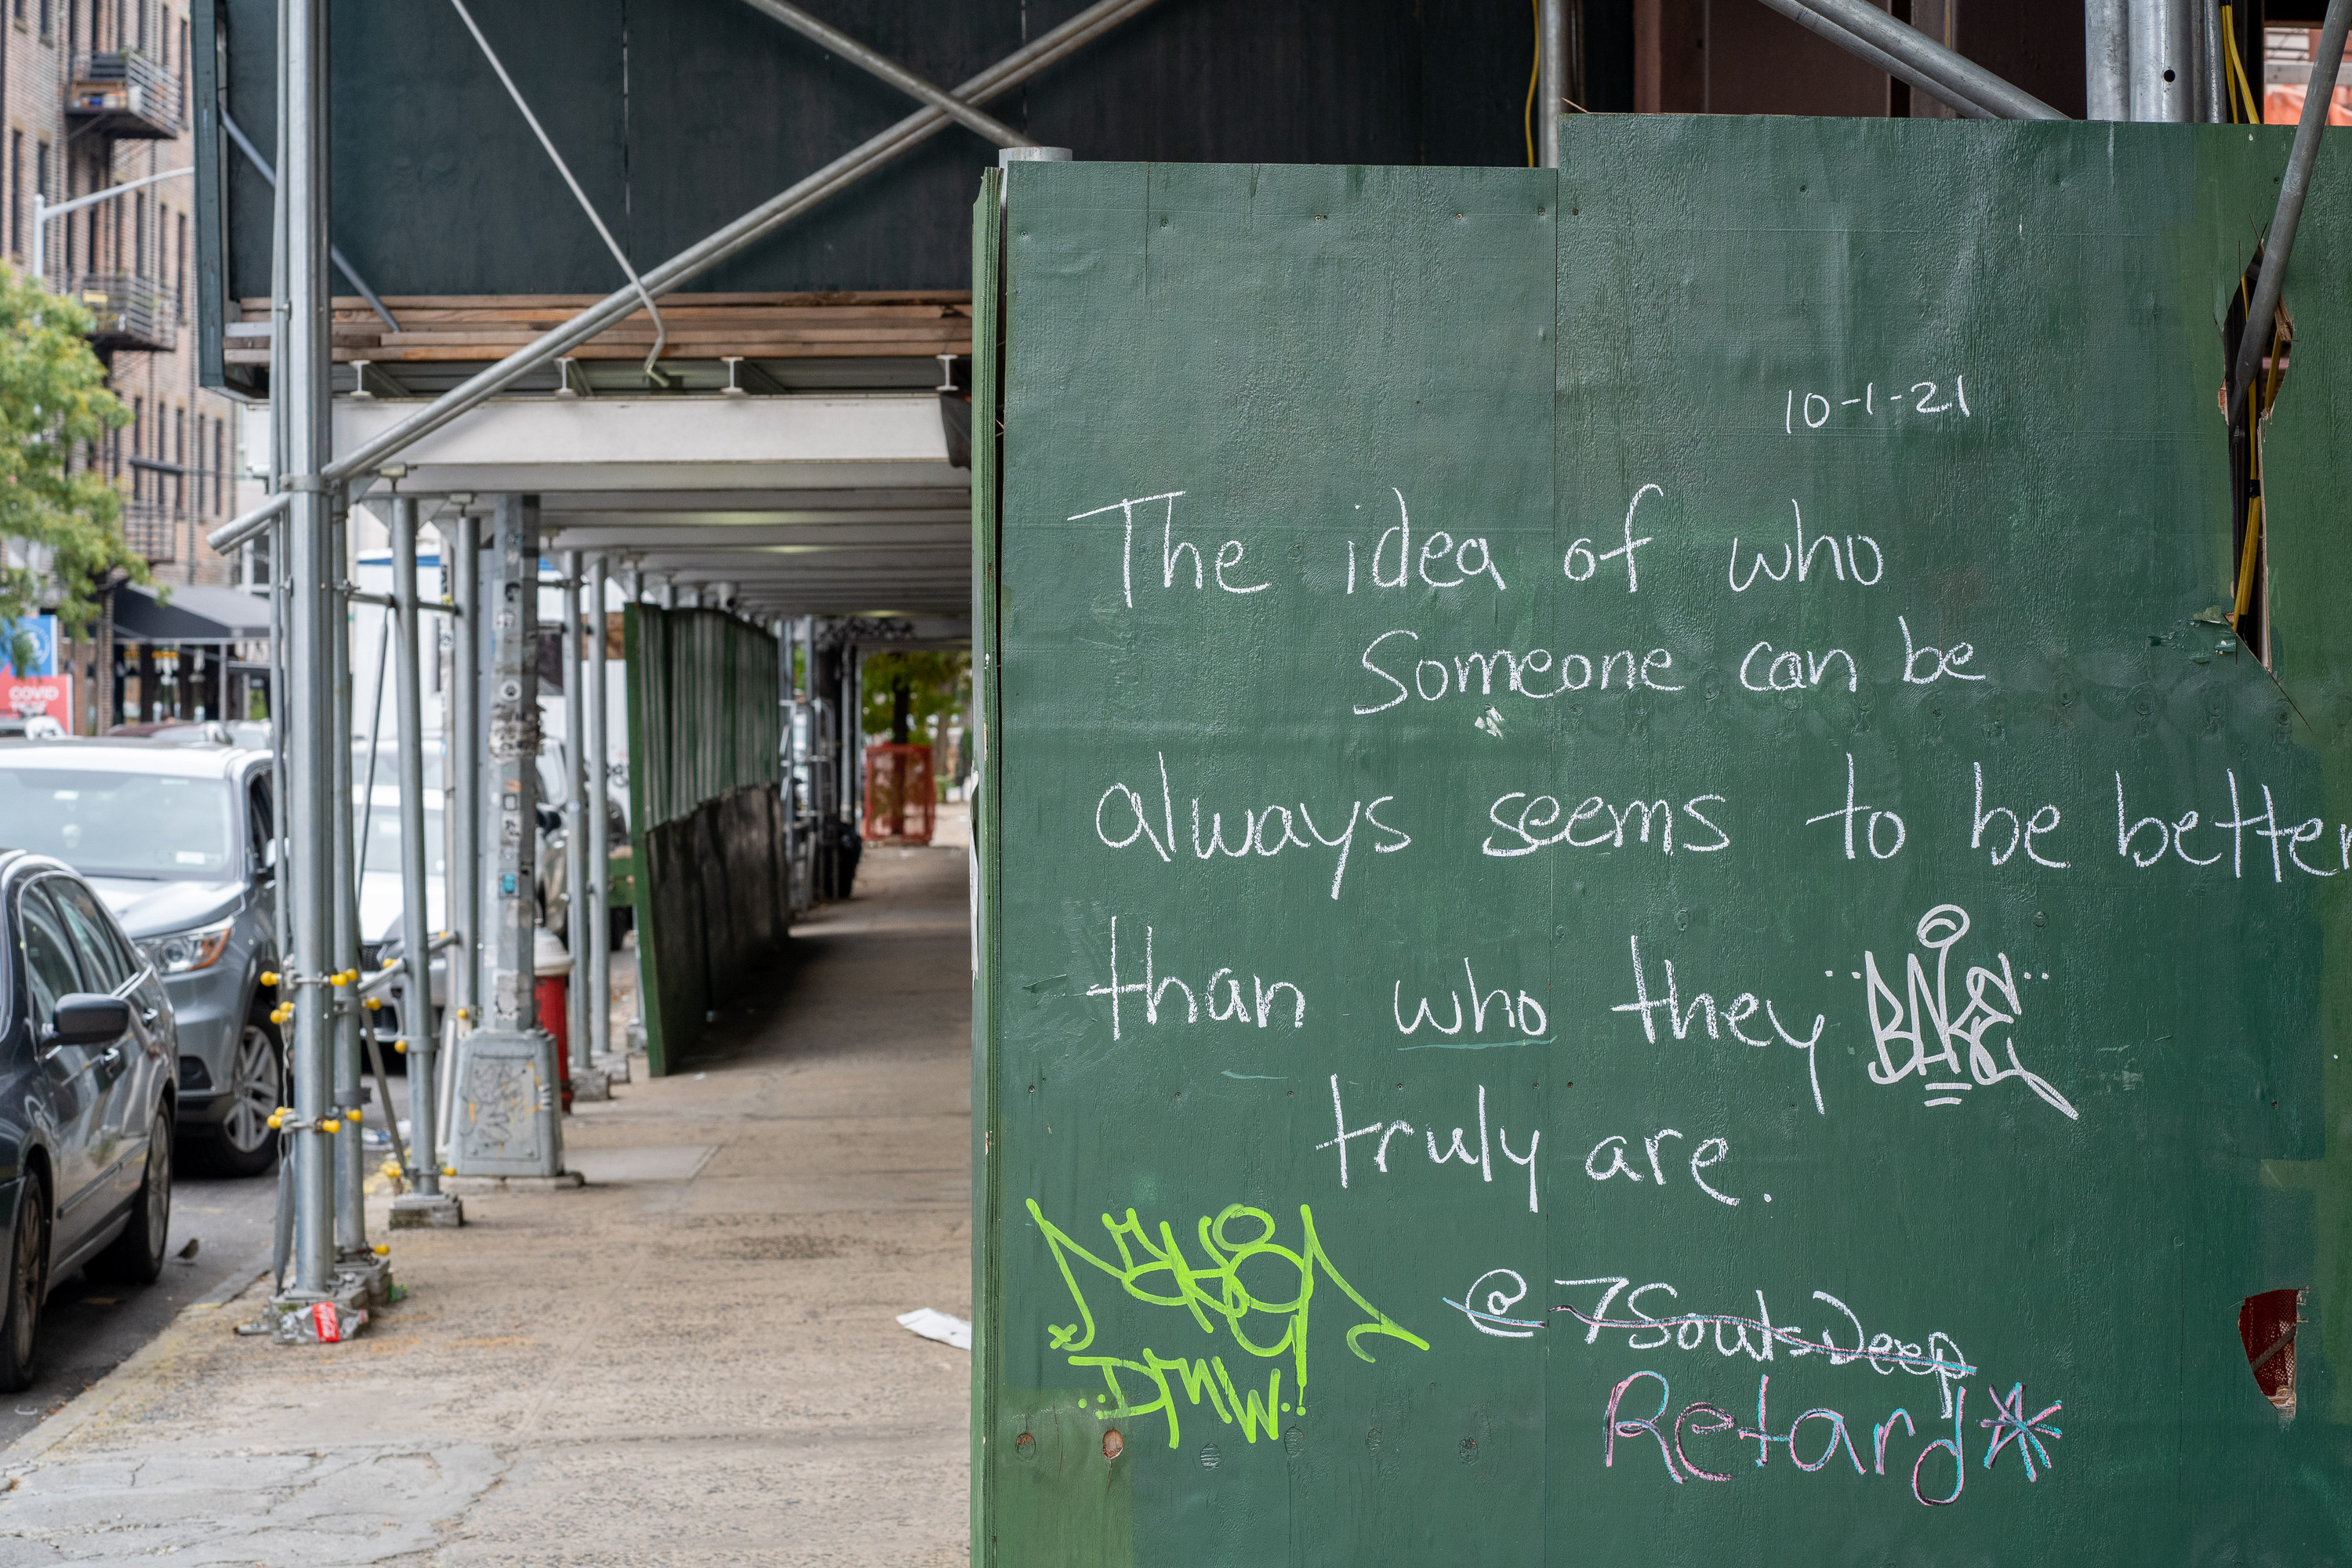 10-1-21
The idea of who
Someone can be
always seems to be better
than who they
BAKE
truly are.
DMW
@7SoulsDeep
Retard*
COVID